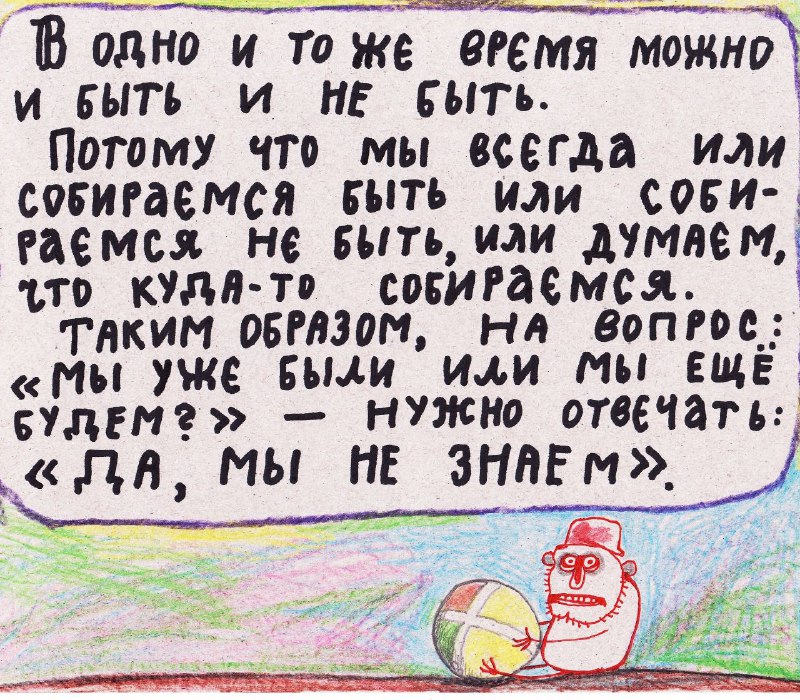 В одно и то же время можно
и быть и не быть.
Потому что мы всегда или
собираемся быть или соби-
раемся не быть, или думаем,
что куда-то собираемся.
Таким образом, на вопрос:
«Мы уже были или мы ещё
будем?» — нужно отвечать:
«Да, мы не знаем».